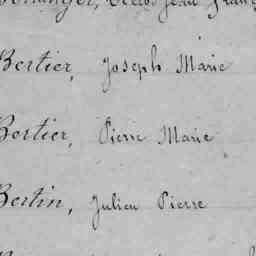 Bertier, Joseph Marie
Bertier, Pierre Marie
Bertin, Julien Pierre